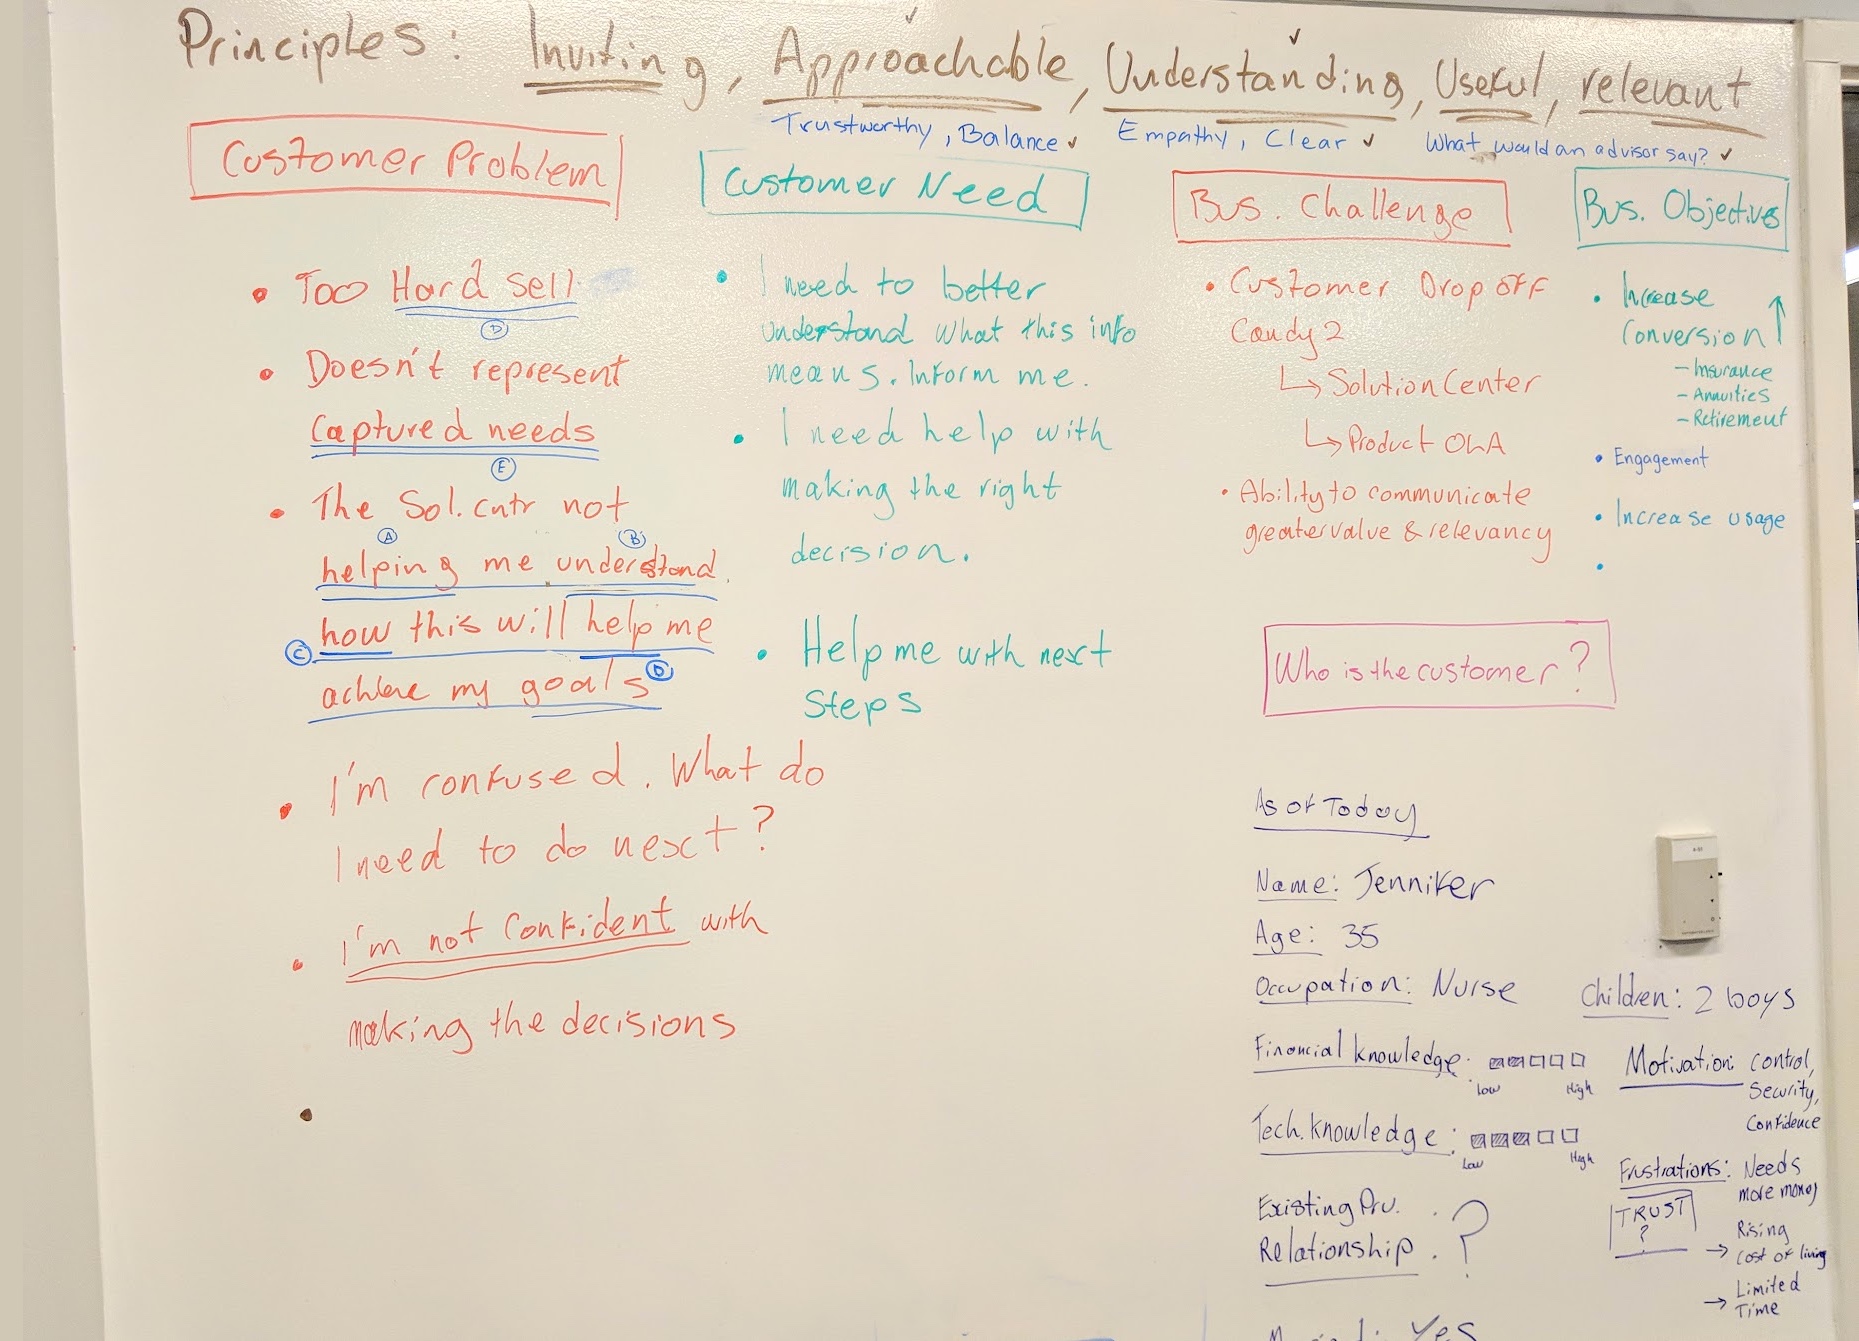 Principles: Inviting, Approachable, Understanding, Useful, relevant
Trustworthy, Balance ✓ Empathy, Clear ✓ What would an advisor say? ✓
Customer Problem
• Too Hard sell
D
• Doesn't represent
captured needs
E
• The Sol. cntr not
A B
helping me understand
how this will help me
C
achieve my goals
D
• I'm confused. What do
I need to do next?
• I'm not confident with
making the decisions
Customer Need
• I need to better
understand what this info
means. Inform me.
• I need help with
making the right
decision.
• Help me with next
steps
Bus. Challenge
• Customer Drop off
Candy 2
↳ Solution Center
↳ Product OLA
• Ability to communicate
greater value & relevancy
Bus. Objectives
• Increase
Conversion ↑
- Insurance
- Annuities
- Retirement
• Engagement
• Increase usage
Who is the customer?
As of Today
Name: Jennifer
Age: 35
Occupation: Nurse
Children: 2 boys
Financial knowledge:
Low High
Tech. knowledge:
Low High
Existing Pru.
Relationship. ?
Motivation: control,
Security,
Confidence
Frustrations: Needs
more money
TRUST
?
→ Rising
cost of living
→ Limited
Time
Yes